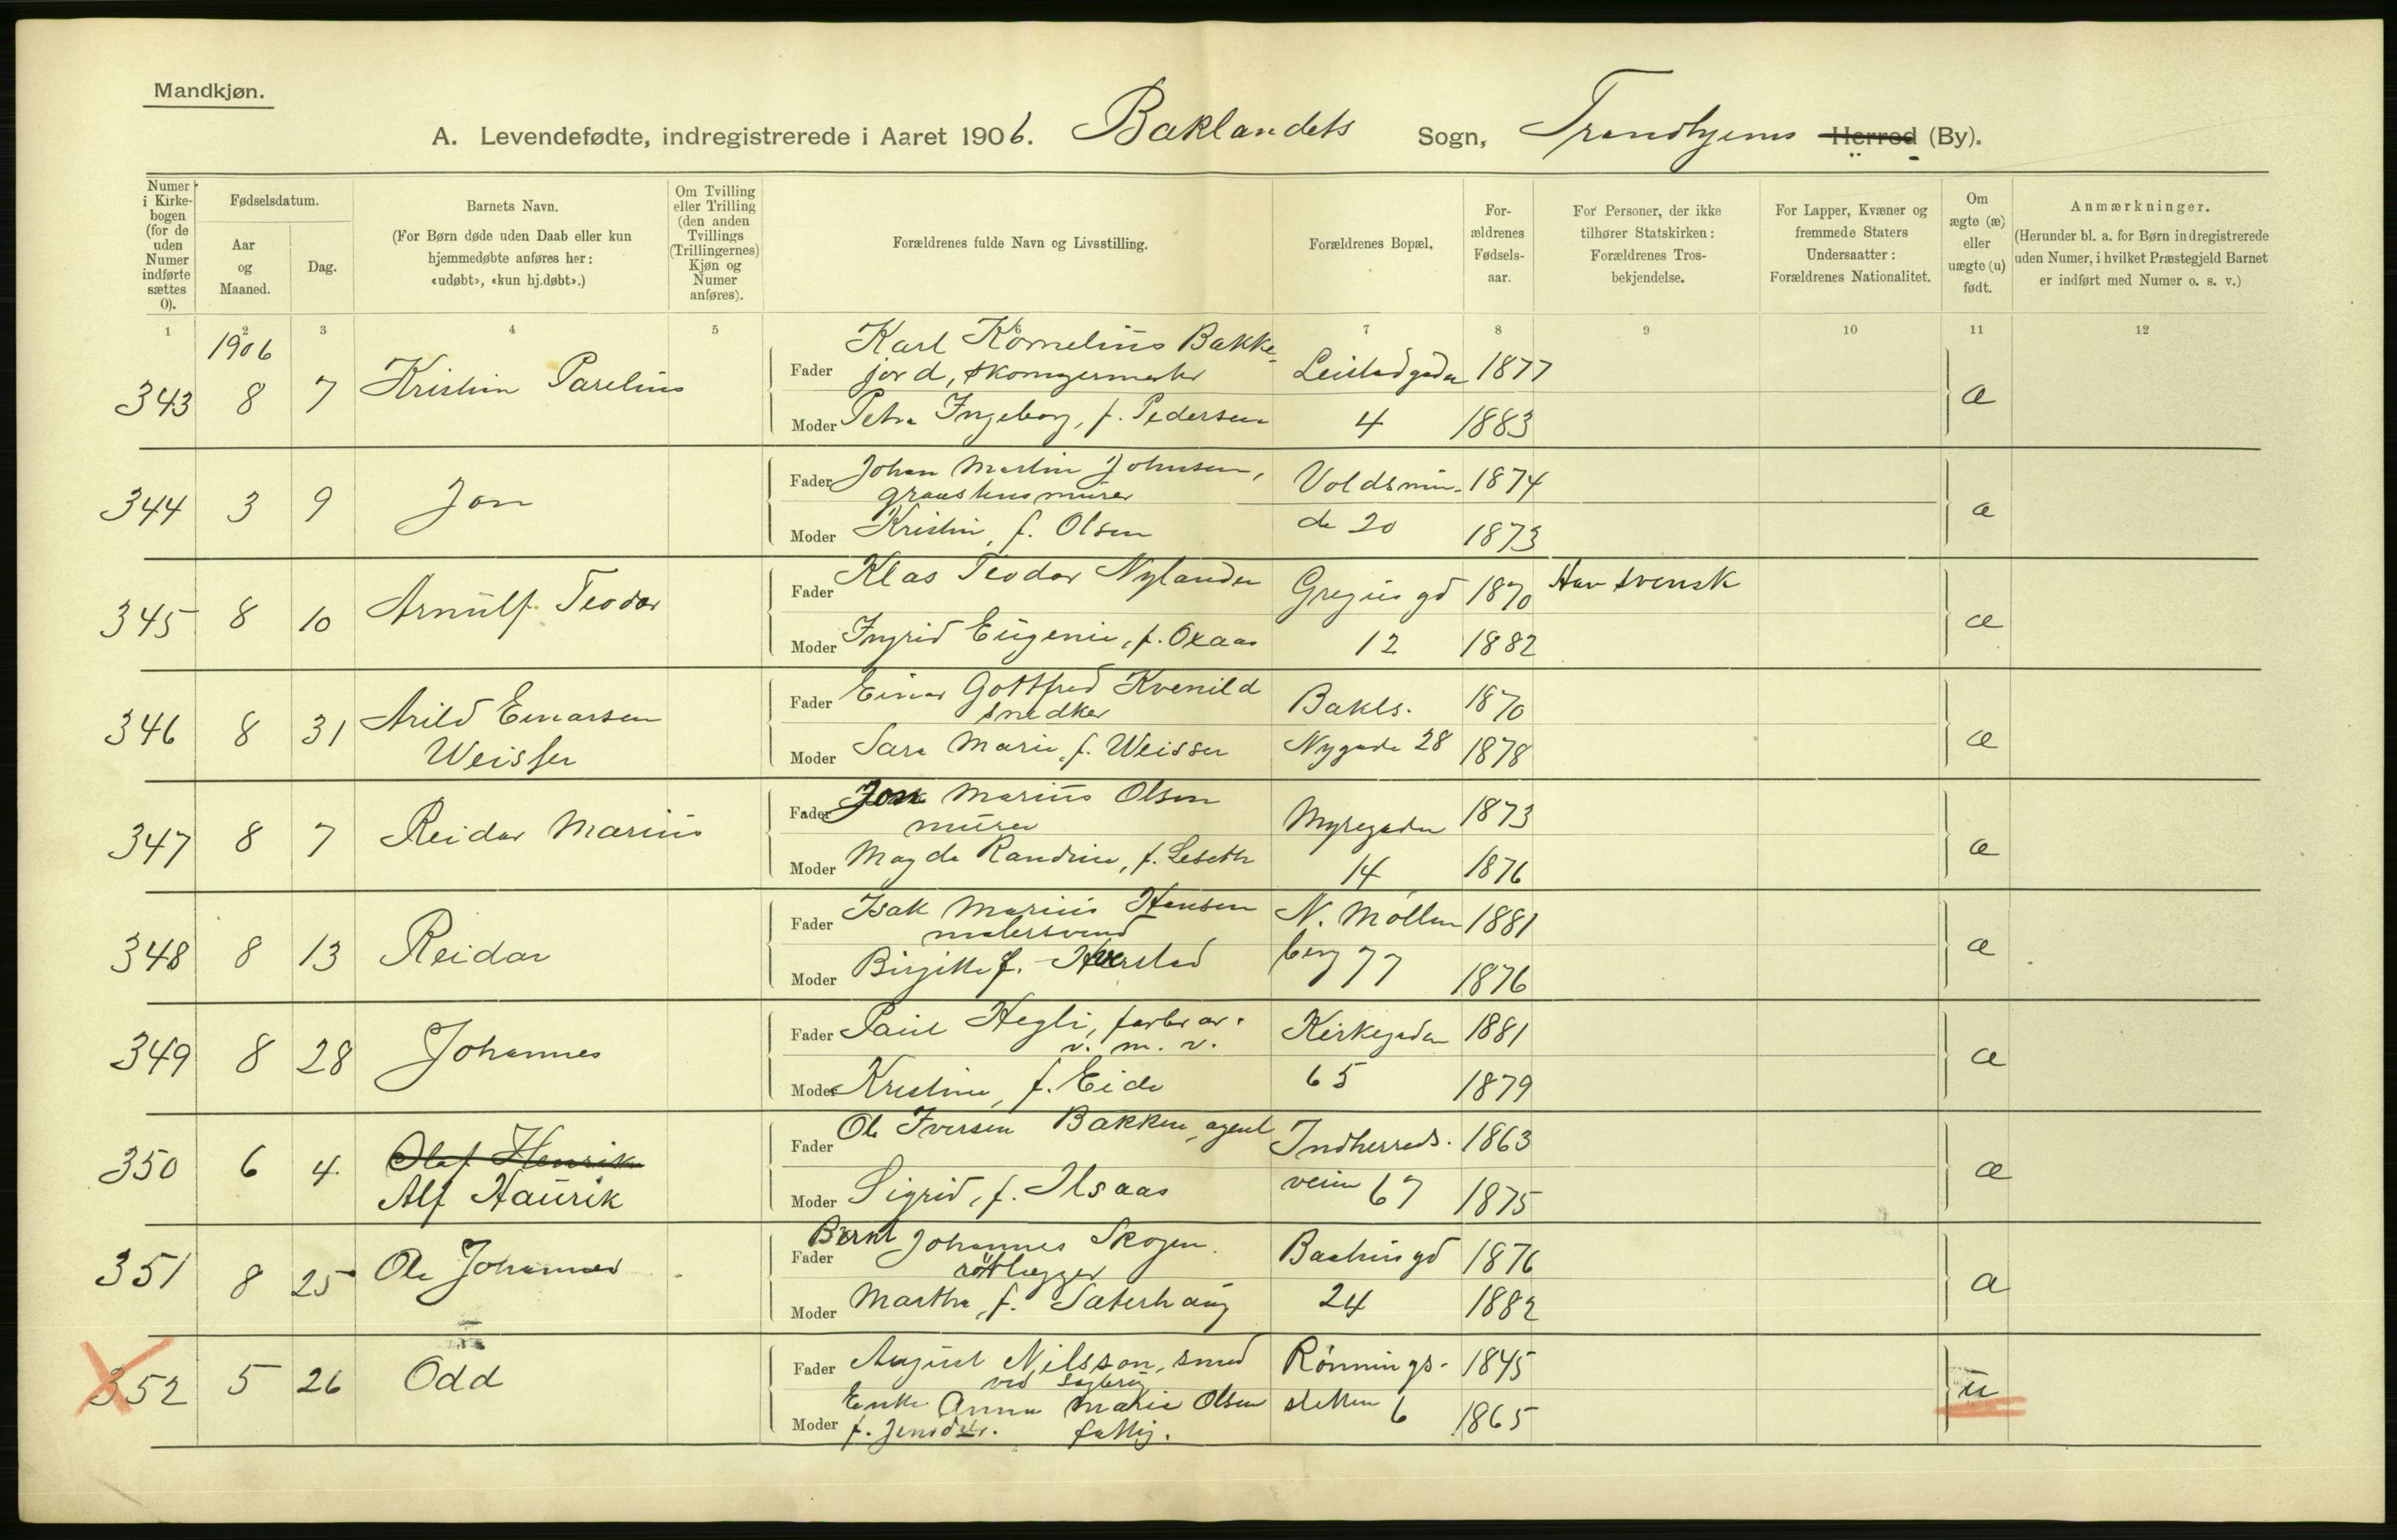 Mandkjøn.
A. Levendefødte, indregistrerede i Aaret 1906. Baklandets Sogn, Trondhjems Herred (By).
Numer i Kirkebogen (for de uden Numer indførte sættes 0).
Fødselsdatum.
Aar og Maaned.
Dag.
Barnets Navn.
(For Børn døde uden Daab eller kun hjemmedøbte anføres her: «udøbt», «kun hj.døbt».)
Om Tvilling eller Trilling (den anden Tvillings (Trillingernes) Kjøn og Numer anføres).
Forældrenes fulde Navn og Livsstilling.
Forældrenes Bopæl,
Forældrenes Fødselsaar.
For Personer, der ikke tilhører Statskirken: Forældrenes Trosbekjendelse.
For Lapper, Kvæner og fremmede Staters Undersaatter: Forældrenes Nationalitet.
Om ægte (æ) eller uægte (u) født.
Anmærkninger.
(Herunder bl. a. for Børn indregistrerede uden Numer, i hvilket Præstegjeld Barnet er indført med Numer o. s. v.)
1 2 3 4 5 6 7 8 9 10 11 12
1906
343 8 7 Kristian Parelius
Fader Karl Kornelius Bakke-
jord, skomagermester Leistadgaden 1877
Moder Petra Ingeborg, f. Pedersen 4 1883
æ
344 3 9 Jon
Fader Johan Martin Johnsen, Voldsmin- 1874
graastensmurer
Moder Kristin, f. Olsen de 20 1873
æ
345 8 10 Arnulf Teodor
Fader Klas Teodor Nylander Gregus gd 1870 Han svensk
Moder Ingrid Eugenie, f. Oxaas 12 1882
æ
346 8 31 Arild Einarsen
Weisser
Fader Einar Gottfred Kvenild Bakls. 1870
snedker
Moder Sara Marie, f. Weisser Nygade 28 1878
æ
347 8 7 Reidar Marius
Fader Marius Olsen Myregaden 1873
murer
Moder Magda Randine, f. Leseth 14 1876
æ
348 8 13 Reidar
Fader Isak Marius Hansen N. Møllen 1881
malersvend
Moder Birgitte f. berg 77 1876
æ
349 8 28 Johannes
Fader Paul Hegli, farverar. Kirkegaden 1881
v. m. v.
Moder Kristine, f. Eide 65 1879
æ
350 6 4 Olaf Henrik
Alf Haurik
Fader Ole Iversen Bakken, agent Indherreds- 1863
Moder Sigrid, f. Ilsaas veien 67 1875
æ
351 8 25 Ole Johannes
Fader Bernt Johannes Skogen. Bachus gd 1876
rørlægger
Moder Martha, f. Saterhaug 24 1882
æ
352 5 26 Odd
Fader August Nilsson, smed Rønnings- 1845
ved Sagbrug
Moder Enke Anna Marie Olsen sletten 6 1865
f. Jensdtr. fattig.
u